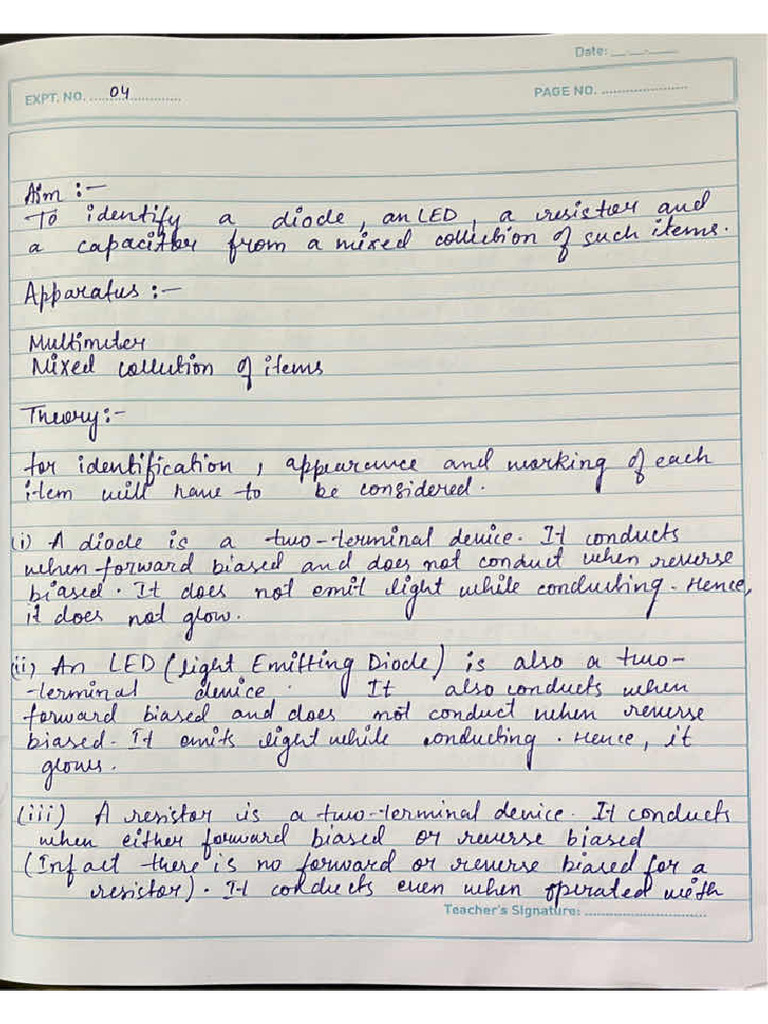 Date: __.__.____
EXPT. NO. ........04..............
PAGE NO. ........................
Aim :-
To identify a diode, an LED, a resistor and
a capacitor from a mixed collection of such items.
Apparatus :-
Multimeter
Mixed collection of items
Theory:-
for identification, appearance and working of each
item will have to be considered.
(i) A diode is a two-terminal device. It conducts
when forward biased and does not conduct when reverse
biased. It does not emit light while conducting. Hence,
it does not glow.
(ii) An LED (light Emitting Diode) is also a two-
-terminal device. It also conducts when
forward biased and does not conduct when reverse
biased. It emits light while conducting. Hence, it
glows.
(iii) A resistor is a two-terminal device. It conducts
when either forward biased or reverse biased
(Infact there is no forward or reverse biased for a
resistor). It conducts even when operated with
Teacher's Signature: ..............................